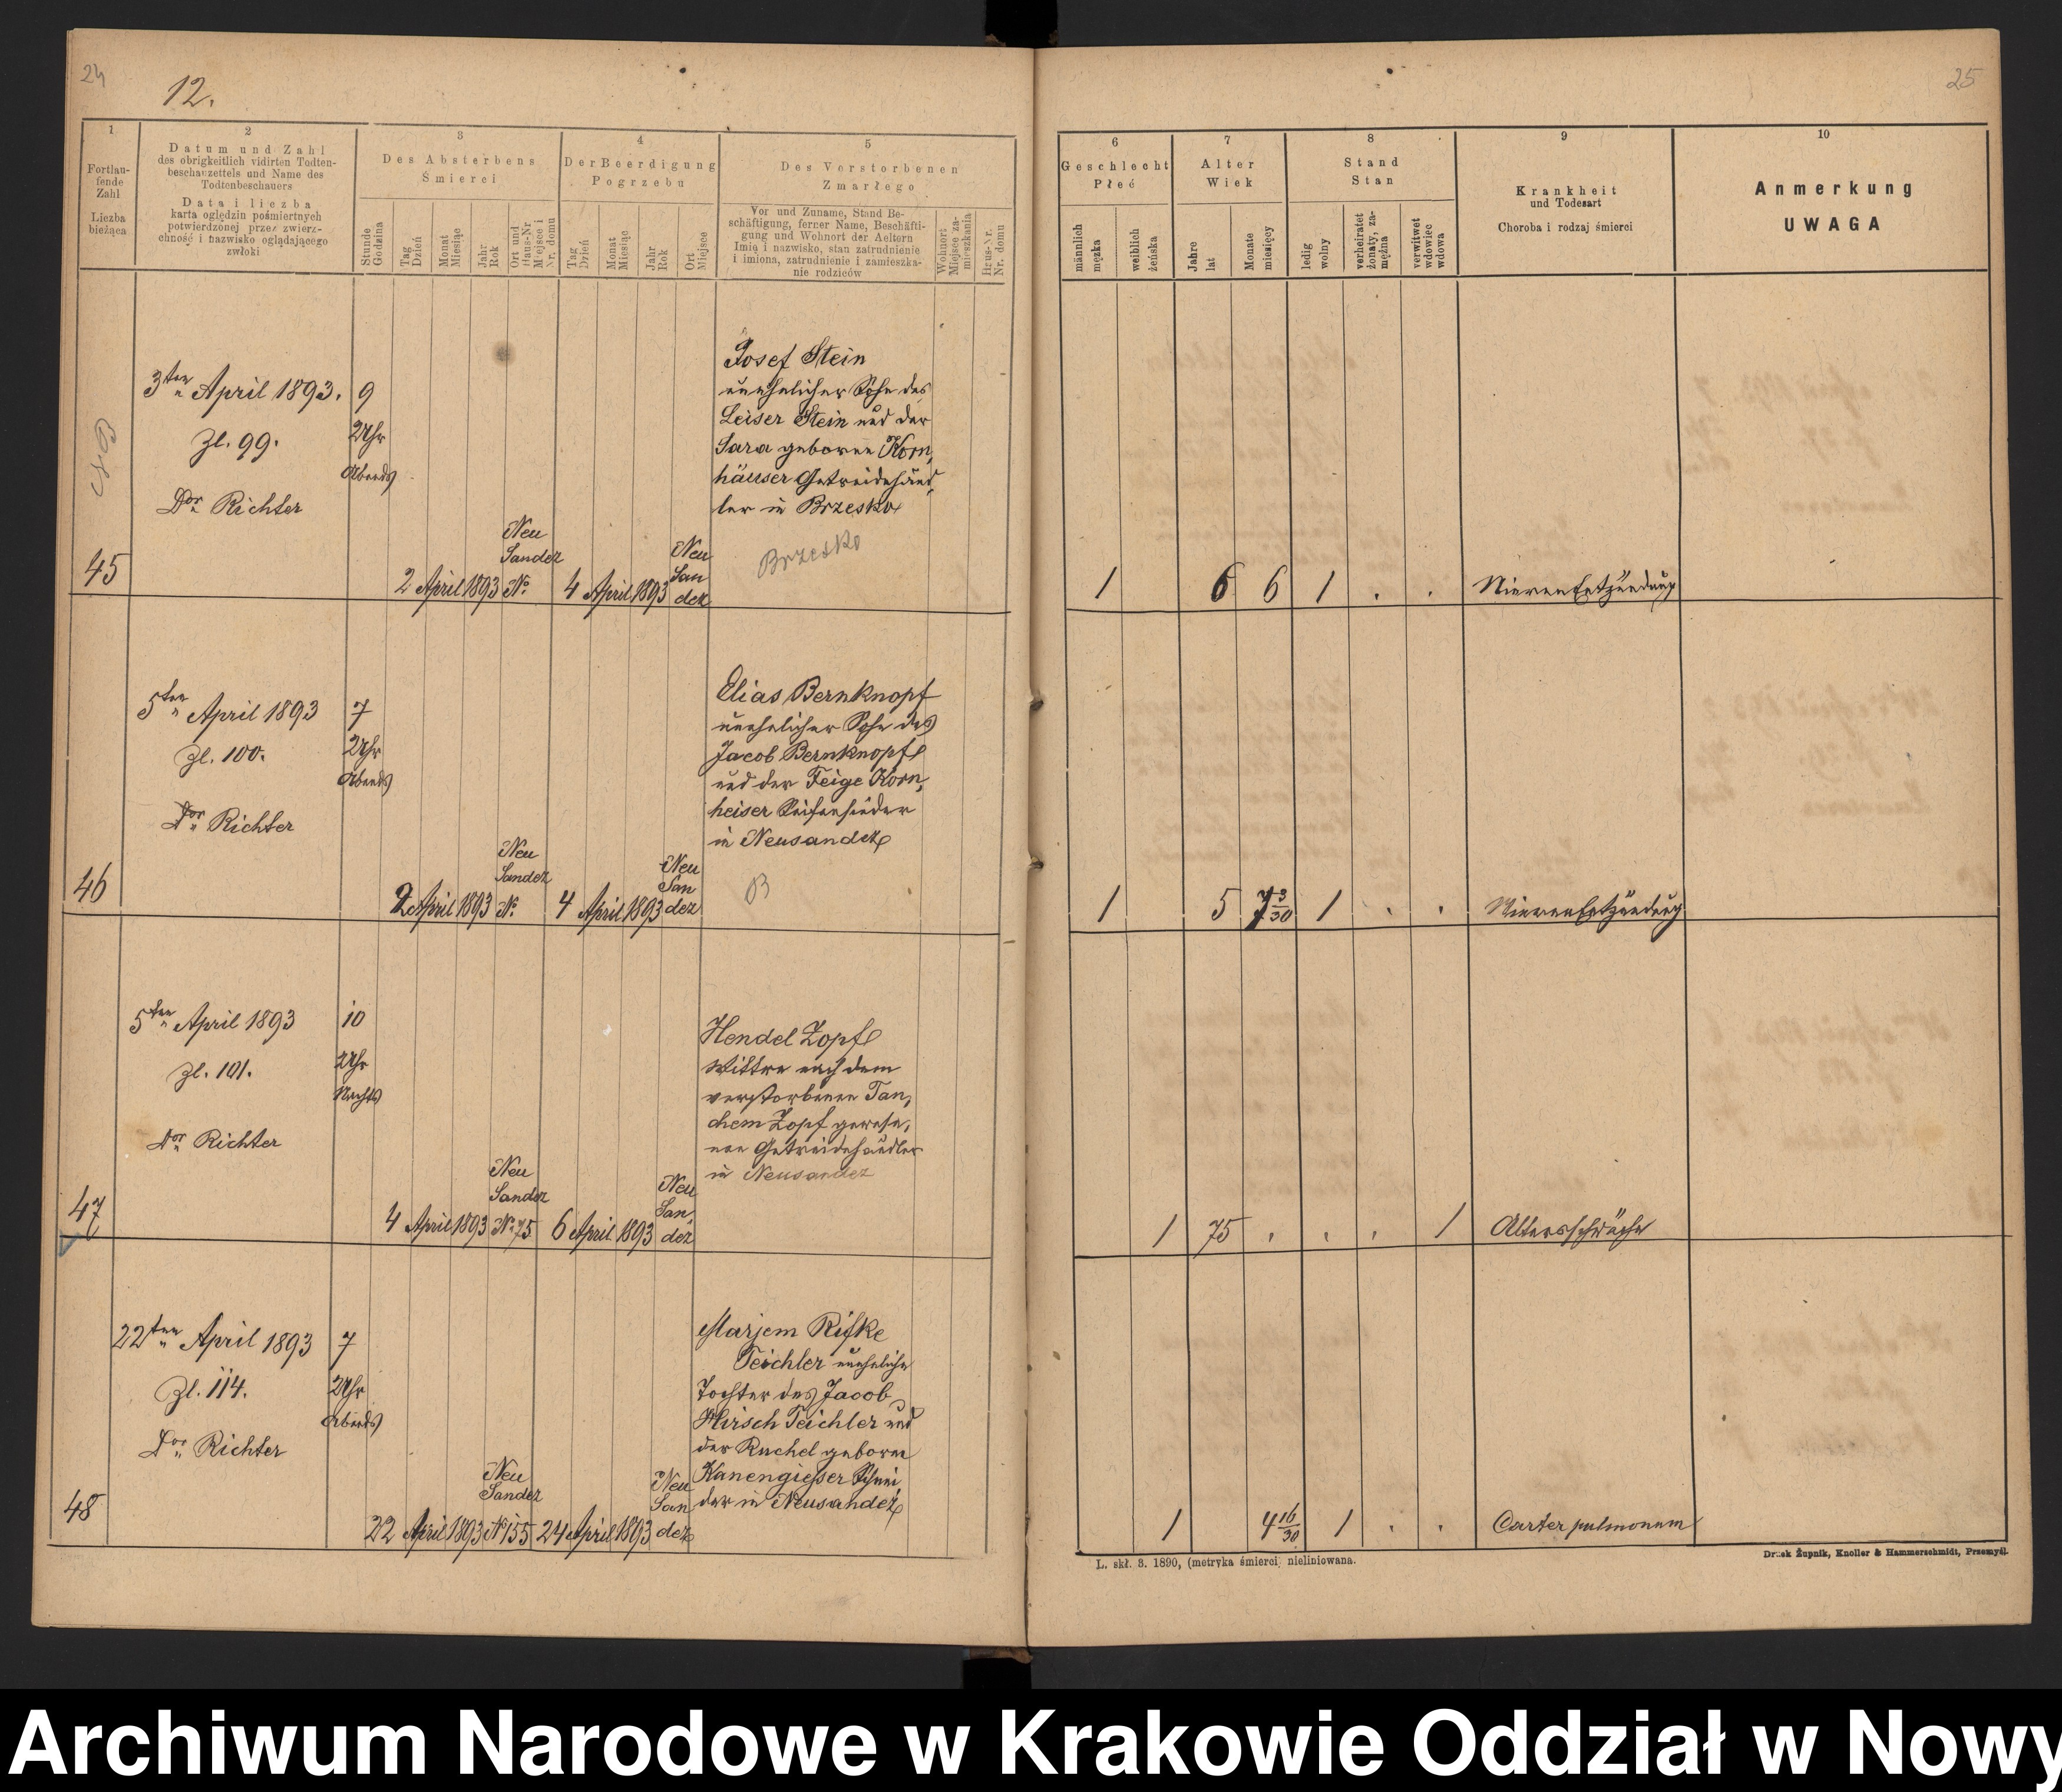 24
12.
25
1
Fortlau-
fende
Zahl
Liczba
bieżąca
2
Datum und Zahl
des obrigkeitlich vidirten Todten-
beschauzettels und Name des
Todtenbeschauers
Data i liczba
karta oględzin pośmiertnych
potwierdzonej przez zwierz-
chność i nazwisko oglądającego
zwłoki
3
Des Absterbens
Śmierci
Stunde
Godzina
Tag
Dzień
Monat
Miesiąc
Jahr
Rok
Ort und
Haus-Nr
Miejsce i
Nr. domu
4
Der Beerdigung
Pogrzebu
Tag
Dzień
Monat
Miesiąc
Jahr
Rok
Ort
Miejsce
5
Des Verstorbenen
Zmarłego
Vor und Zuname, Stand Be-
schäftigung, ferner Name, Beschäfti-
gung und Wohnort der Aeltern
Imię i nazwisko, stan zatrudnienie
i imiona, zatrudnienie i zamieszka-
nie rodzieów
Wohnort
Miejsce za-
mieszkania
Haus-Nr.
Nr. domu
6
Geschlecht
Płeć
männlich
męzka
weiblich
żeńska
7
Alter
Wiek
Jahre
lat
Monate
miesięcy
8
Stand
Stan
ledig
wolny
verheiratet
żonaty, za-
mężna
verwitwet
wdowiec
wdowa
9
Krankheit
und Todesart
Choroba i rodzaj śmierci
10
Anmerkung
UWAGA
45
3ten April 1893.
Zl. 99.
Dor Richter
9
Uhr
Abends
2 April 1893
Neu
Sandez
No.
4 April 1893
Neu
San
dez
Josef Stein
unehelicher Sohn des
Leiser Stein und der
Sara geborene Korn,
häuser Getreidehänd,
ler in Brzesko
Brzesko
1 6 6 1 . .
Nierenentzündung
46
5ten April 1893
Zl. 100.
Dor Richter
7
Uhr
Abends
2 April 1893
Neu
Sandez
No.
4 April 1893
Neu
San
dez
Elias Bernknopf
unehelicher Sohn des
Jacob Bernknopf
und der Feige Korn,
heiser Seifensieder
in Neusandez
B
1 5 7 3/30 1 . .
Nierenentzündung
47
5ten April 1893
Zl. 101.
Dor Richter
10
Uhr
Nachts
4 April 1893
Neu
Sandez
No. 75
6 April 1893
Neu
San,
dez
Hendel Zopf
Wittwe nach dem
verstorbenen Tan,
chem Zopf gewese,
nen Getreidehändler
in Neusandez
1 75 . . . 1
Altersschwäche
48
22ten April 1893
Zl. 114.
Dor Richter
7
Uhr
Abends
22 April 1893
Neu
Sandez
No 155
24 April 1893
Neu
San
dez
Marjem Rifke
Teichler uneheliche
Tochter des Jacob
Hirsch Teichler und
der Ruchel geborne
Kanengiesser Schnei
der in Neusandez
1 4 16/30 1 . .
Carter pulmonum
L. skł. 3. 1890, (metryka śmierci) nieliniowana.
Druk Żupnik, Knoller & Hammerschmidt, Przemyśl.
Archiwum Narodowe w Krakowie Oddział w Nowy